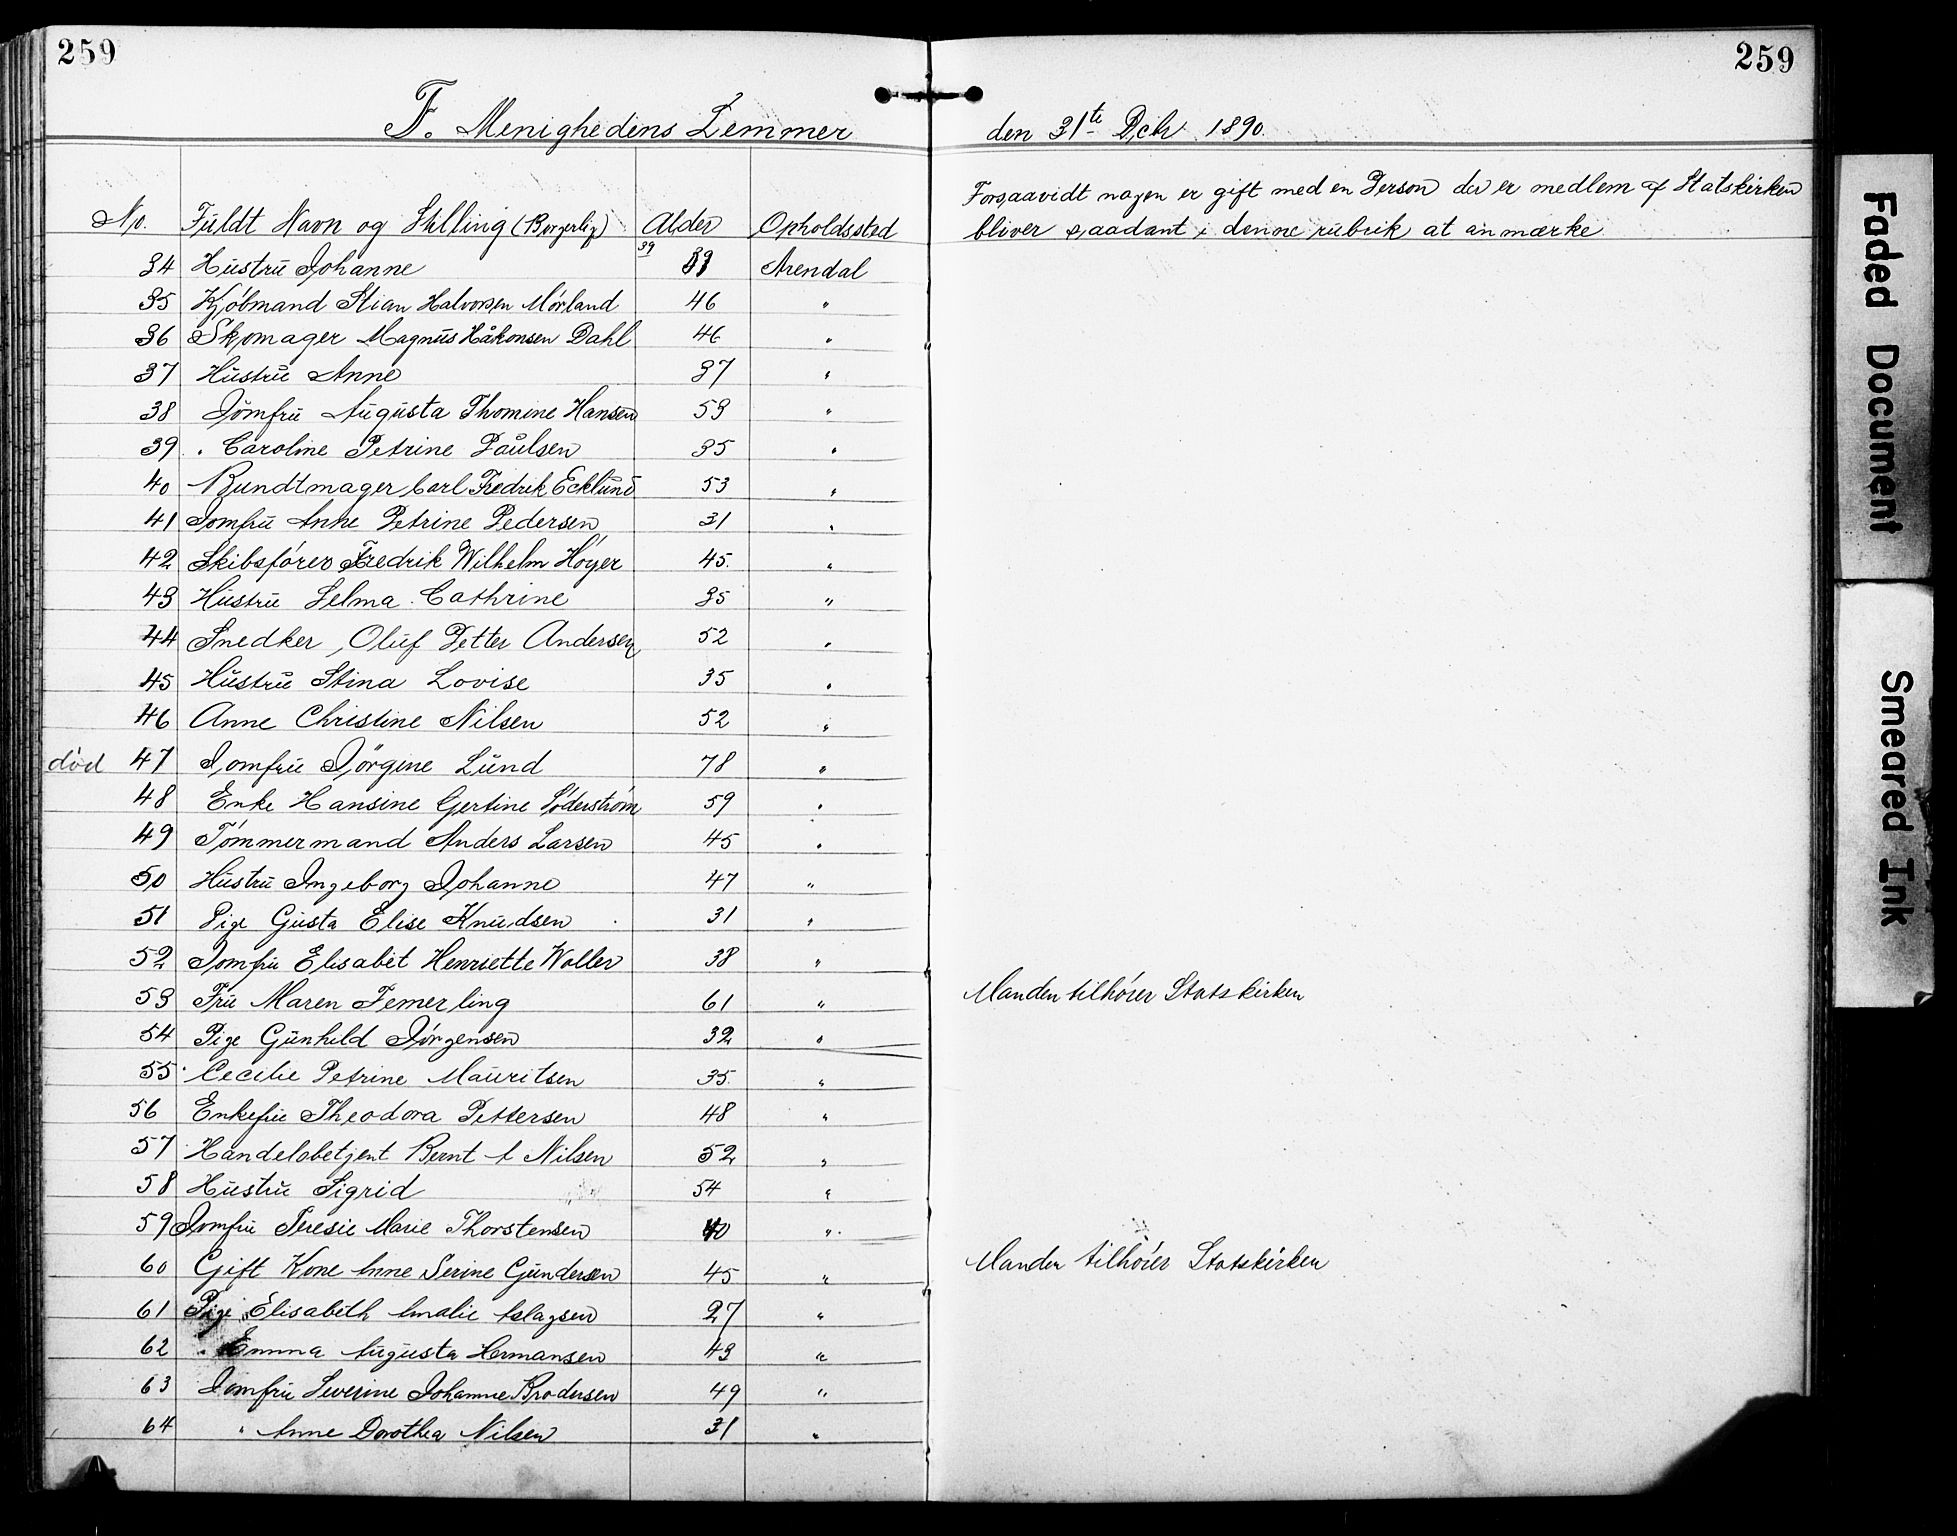 259
259
F. Menighedens Lemmer den 31te Dcbr 1890.
No. Fuldt Navn og Stilling (Borgerlig) Alder Opholdssted
Forsaavidt nogen er gift med en Person der er medlem af Statskirken
bliver saadant i denne rubrik at anmærke
34 Hustru Johanne 39 39 Arendal
35 Kjøbmand Stian Halvorsen Mørland 46 "
36 Skomager Magnus Håkonsen Dahl 46 "
37 Hustru Anne 37 "
38 Jomfru Augusta Thomine Hansen 53 "
39 " Caroline Petrine Paulsen 35 "
40 Bundtmager Carl Fredrik Ecklund 53 "
41 Jomfru Anne Petrine Pedersen 31 "
42 Skibsfører Fredrik Wilhelm Høyer 45. "
43 Hustru Selma Cathrine 35 "
44 Snedker, Oluf Petter Andersen 52 "
45 Hustru Stina Lovise 35 "
46 Anne Christine Nilsen 52 "
død 47 Jomfru Jörgine Lund 78 "
48 Enke Hansine Gertine Søderstrøm 59 "
49 Tømmermand Anders Larsen 45 "
50 Hustru Ingeborg Johanne 47 "
51 Pige Gusta Elise Knudsen 31 "
52 Jomfru Elisabet Henriette Woller 38 "
53 Fru Maren Femerling 61 " Manden tilhører Statskirken
54 Pige Gunhild Jørgensen 32 "
55 " Cecilie Petrine Mauritsen 35. "
56 Enkefru Theodora Pettersen 48 "
57 Handelsbetjent Bernt A Nilsen 52 "
58 Hustru Sigrid 54 "
59 Jomfru Teresie Marie Thorstensen 40 "
60 Gift Kone Anne Serine Gundersen 45 " Manden tilhører Statskirken
61 Pige Elisabeth Amalie Aslagsen 27 "
62 " Emma Augusta Hermansen 43 "
63 Jomfru Severine Johanne Brodersen 49 "
64 " Anne Dorothea Nilsen 31 "
Faded Document
Smeared Ink